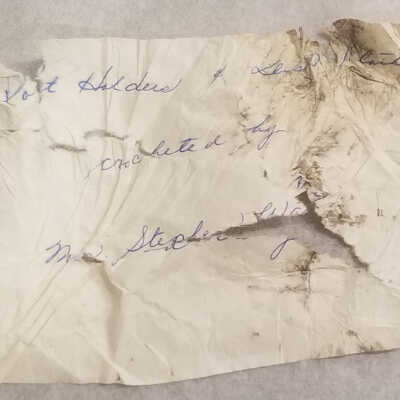 Pot Holders &
crocheted by
Mrs. Stephen